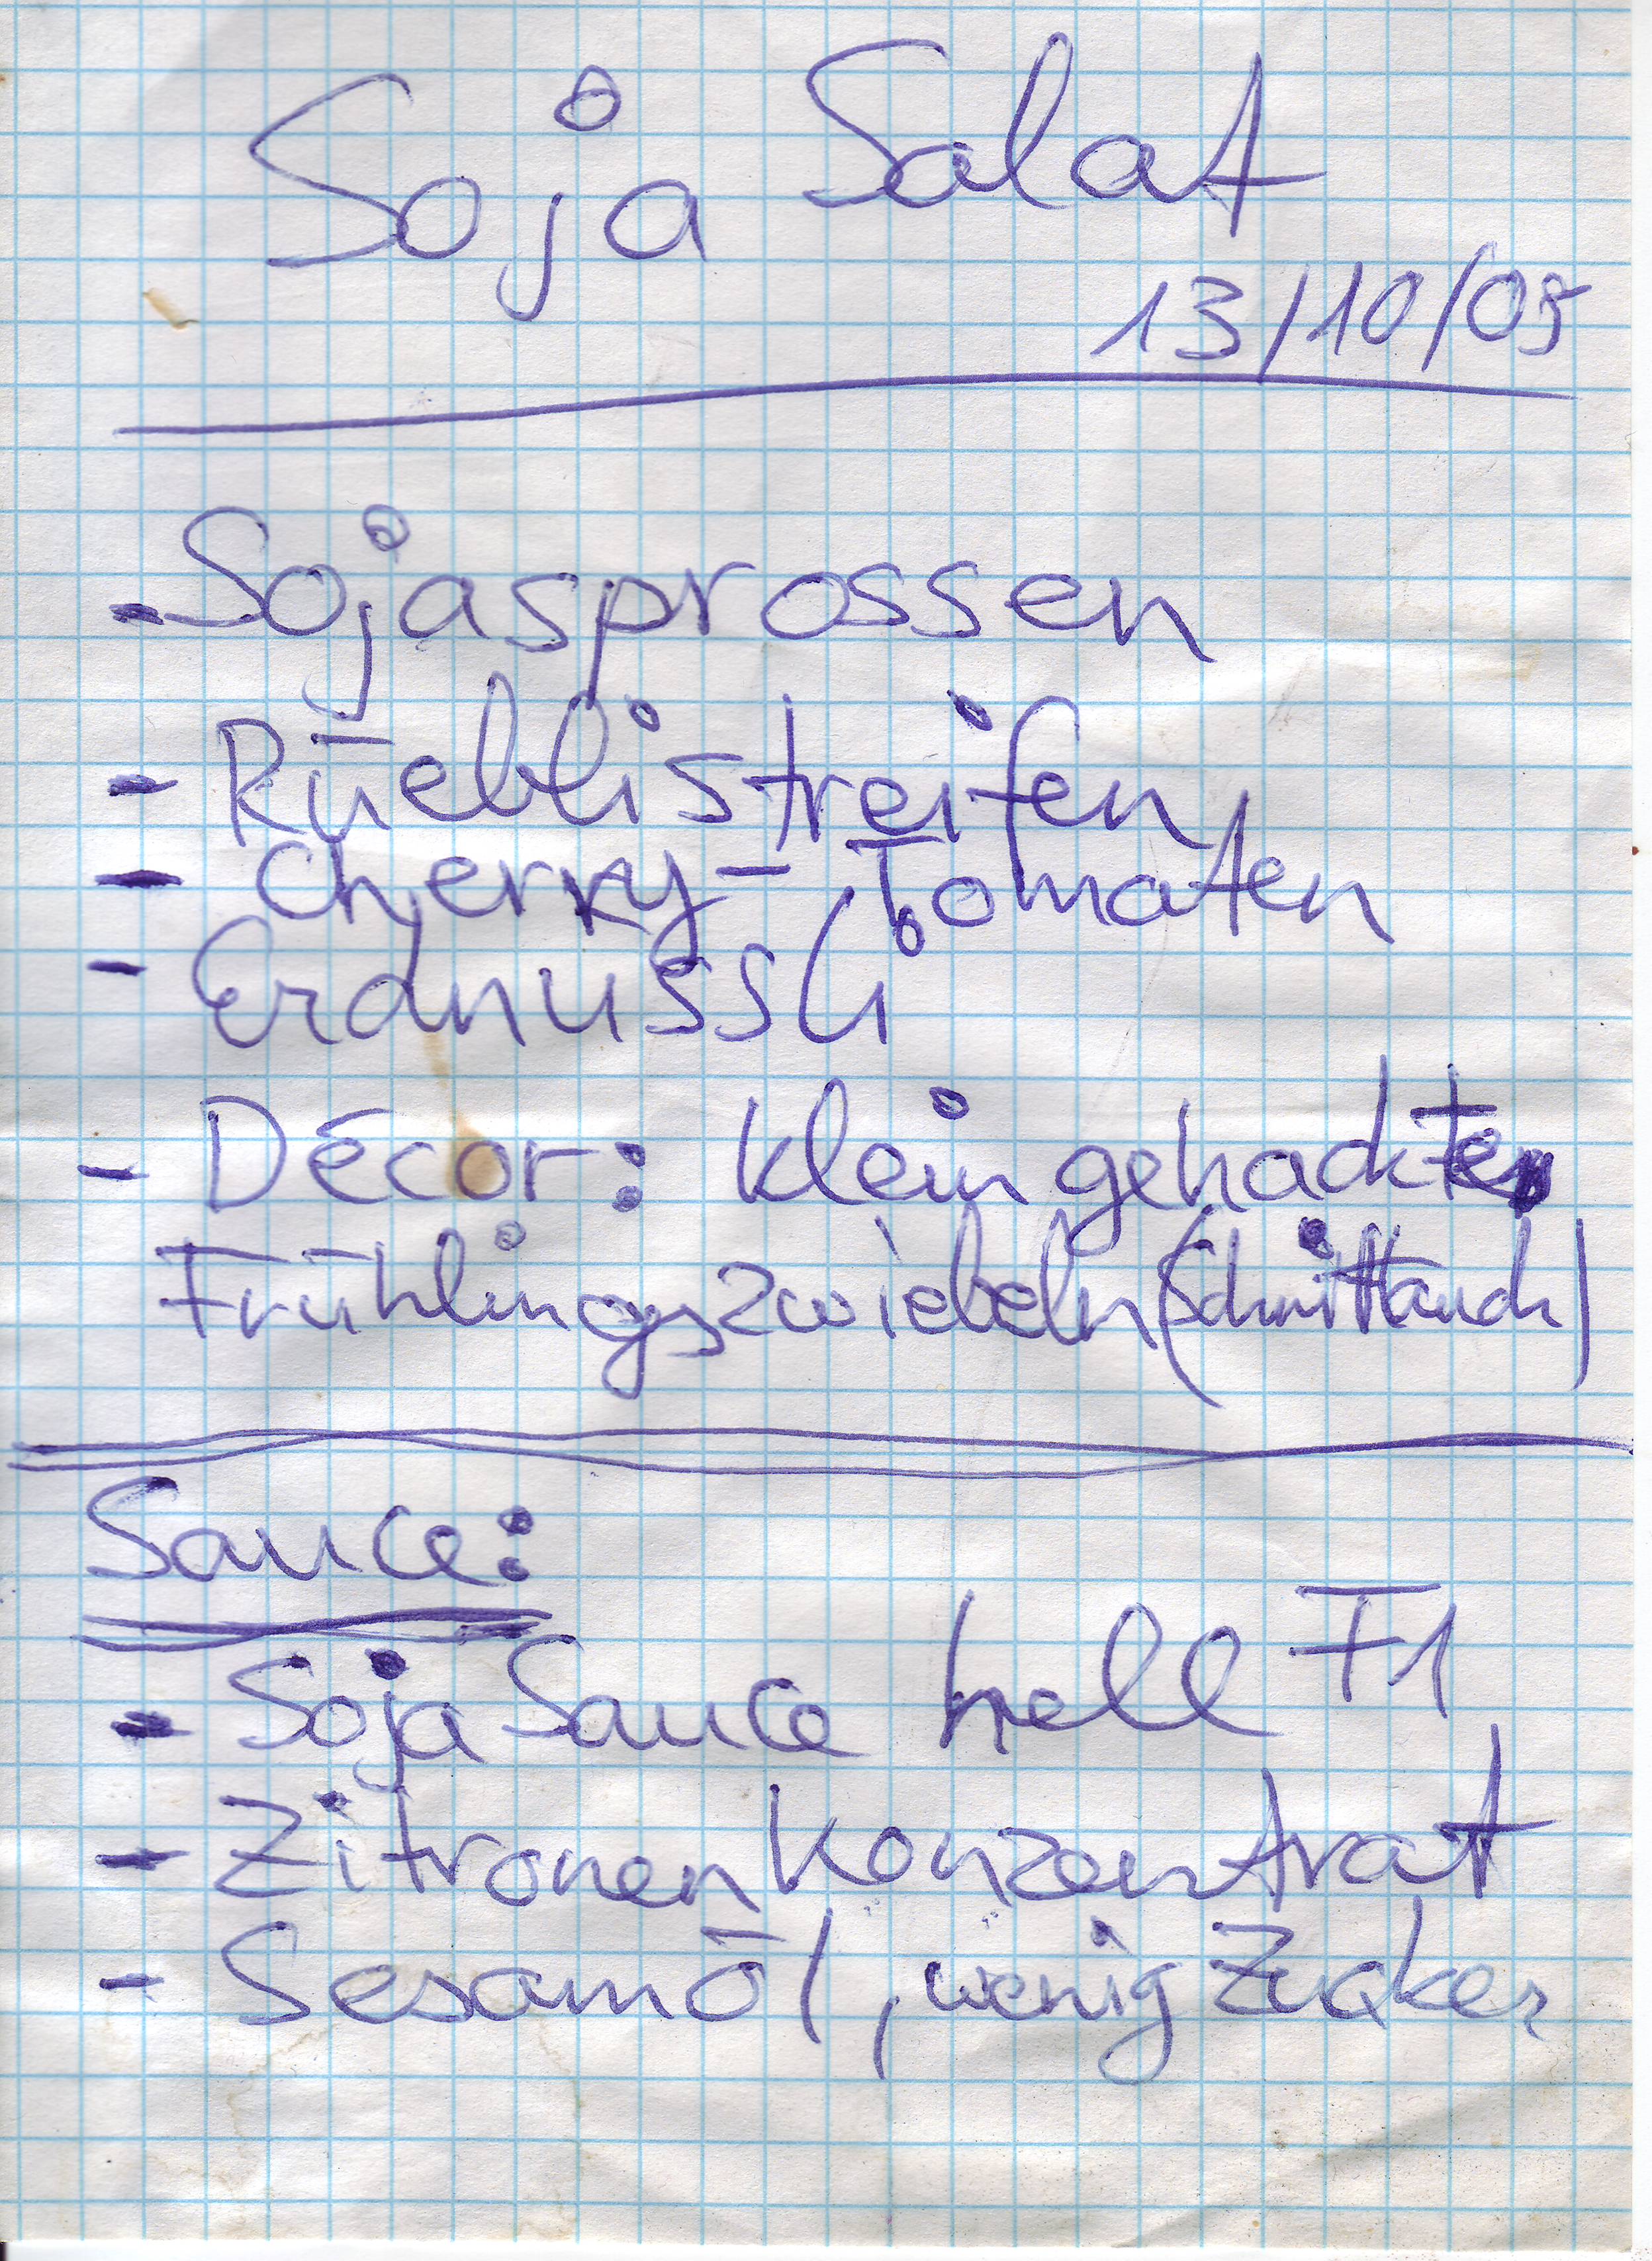 Soja Salat
13/10/05
- Sojasprossen
- Rüeblistreifen
- Cherry-Tomaten
- Erdnüssli
- Décor: kleingehackte
Frühlingszwiebeln (Schnittlauch)
Sauce:
- Soja Sauce hell F1
- Zitronenkonzentrat
- Sesamöl, wenig Zucker